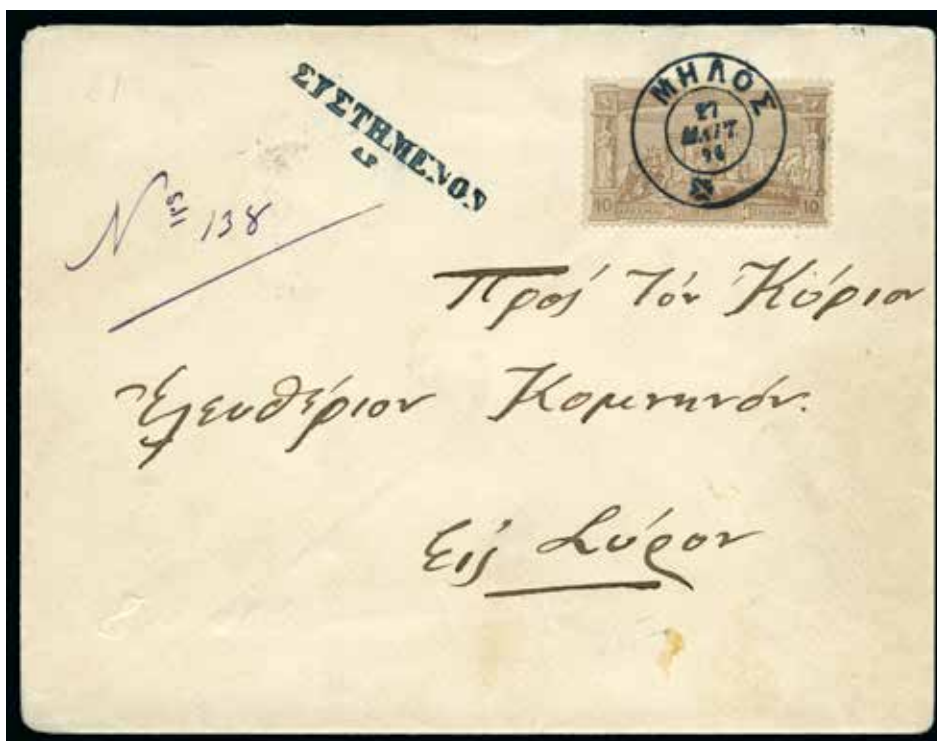 ΣΥΣΤΗΜΕΝΟΝ
ΜΗΛΟΣ
27
ΜΑΡΤ.
96
10 10
Nος 138
Πρὸς τὸν Κύριον
Ἐλευθέριον Κομνηνόν.
Εἰς Σύρον